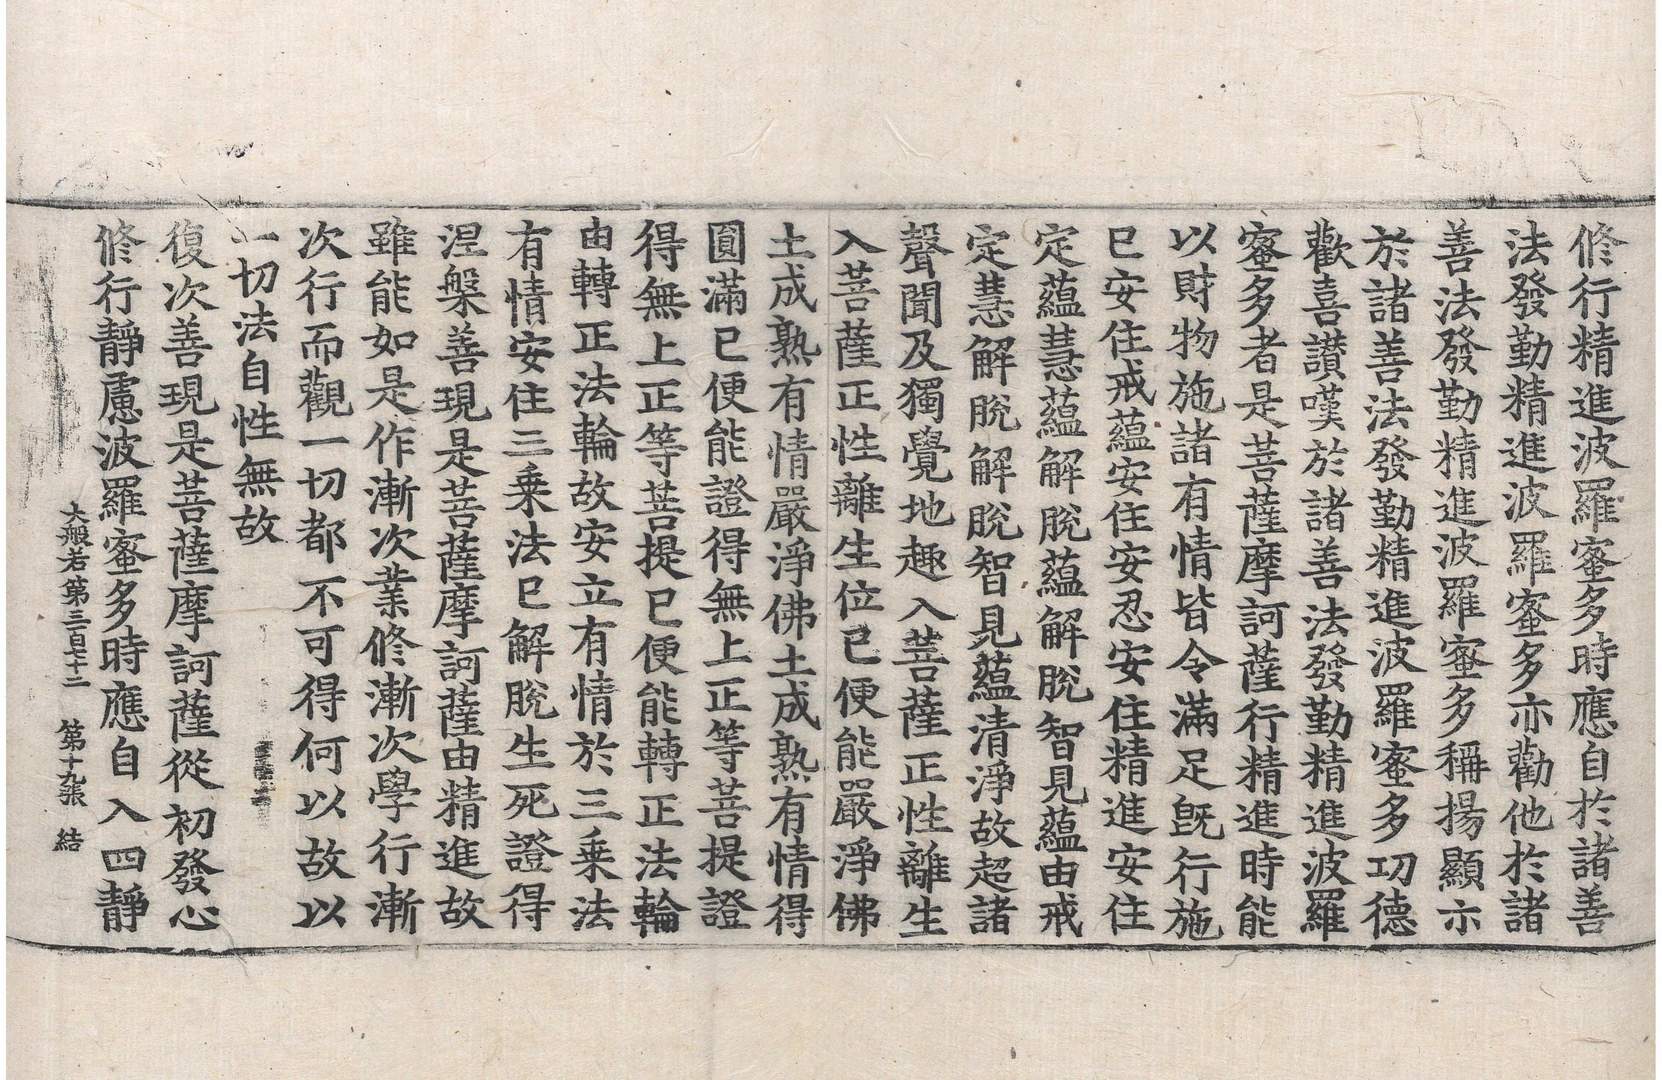 修行精進波羅蜜多時應自於諸善
法發勤精進波羅蜜多亦勸他於諸
善法發勤精進波羅蜜多稱揚顯示
於諸善法發勤精進波羅蜜多功德
歡喜讃嘆於諸善法發勤精進波羅
蜜多者是菩薩摩訶薩行精進時能
以財物施諸有情皆令滿足旣行施
已安住戒蘊安住安忍安住精進安住
定蘊慧蘊解脫蘊解脫智見蘊由戒
定慧解脫解脫智見蘊清淨故超諸
聲聞及獨覺地趣入菩薩正性離生
入菩薩正性離生位已便能嚴淨佛
土成熟有情嚴淨佛土成熟有情得
圓滿已便能證得無上正等菩提證
得無上正等菩提已便能轉正法輪
由轉正法輪故安立有情於三乗法
有情安住三乗法已解脫生死證得
涅槃善現是菩薩摩訶薩由精進故
雖能如是作漸次業修漸次學行漸
次行而觀一切都不可得何以故以
一切法自性無故
復次善現是菩薩摩訶薩從初發心
修行靜慮波羅蜜多時應自入四靜
大般若第三百七十二 第十九張 結